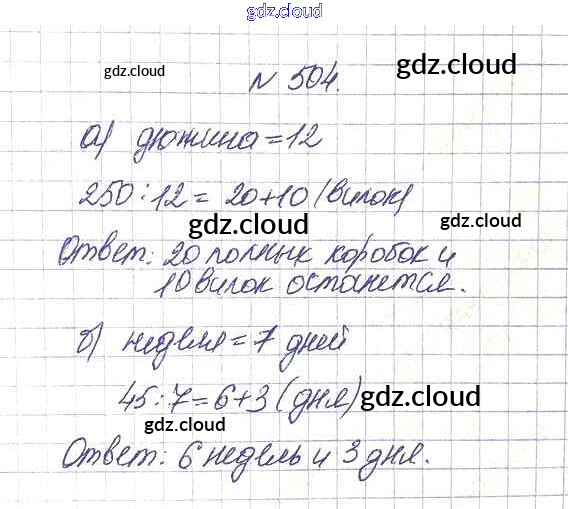 gdz.cloud
gdz.cloud
gdz.cloud
N 504.
а) дюжина = 12
250 : 12 = 20 + 10 (вилок)
gdz.cloud
gdz.cloud
Ответ: 20 полных коробок и
10 вилок останется.
б) неделя = 7 дней
45 : 7 = 6 + 3 (дня)
gdz.cloud
Ответ: 6 недель и 3 дня.